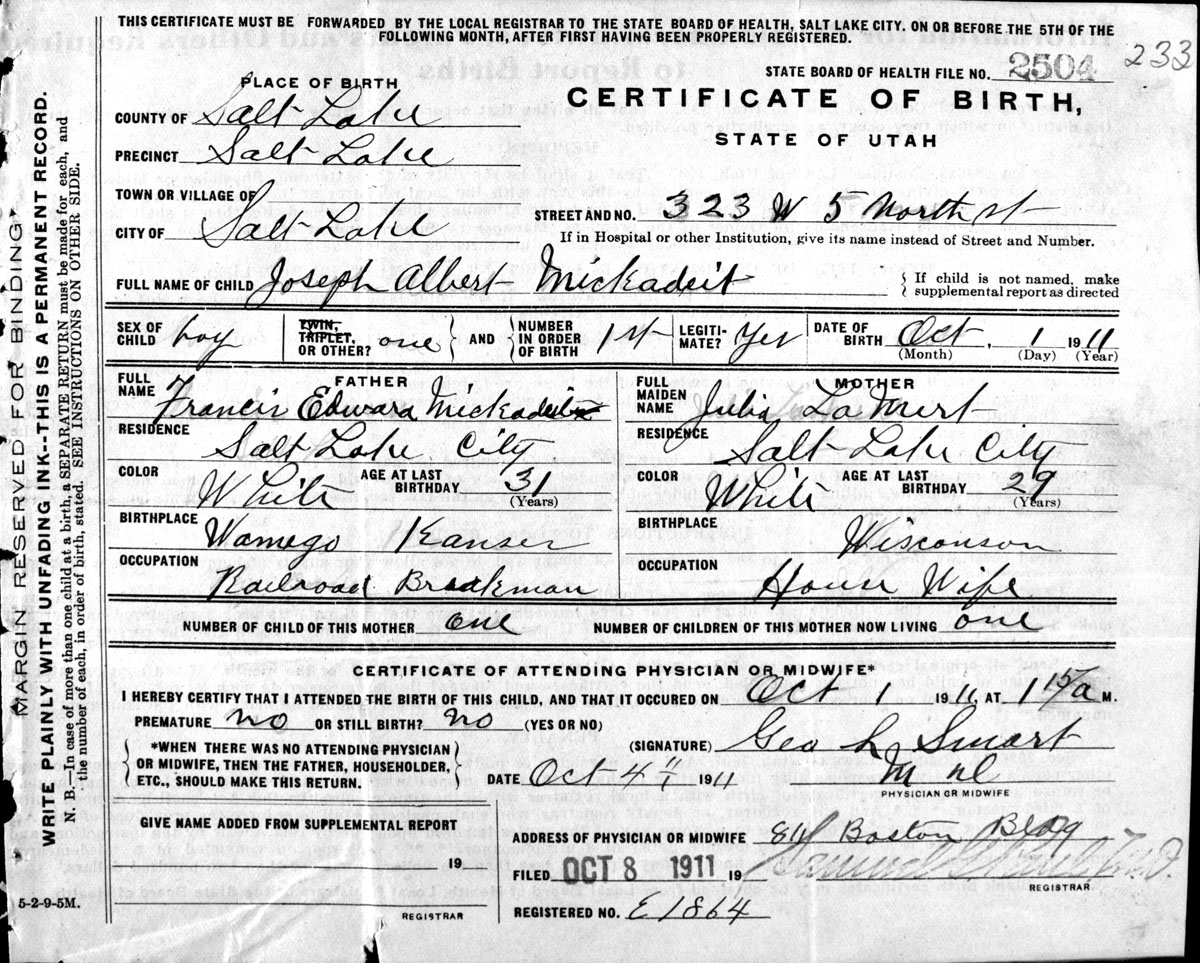 THIS CERTIFICATE MUST BE FORWARDED BY THE LOCAL REGISTRAR TO THE STATE BOARD OF HEALTH, SALT LAKE CITY, ON OR BEFORE THE 5TH OF THE
FOLLOWING MONTH, AFTER FIRST HAVING BEEN PROPERLY REGISTERED.
233
STATE BOARD OF HEALTH FILE NO. 2504
PLACE OF BIRTH
CERTIFICATE OF BIRTH,
STATE OF UTAH
COUNTY OF Salt Lake
PRECINCT Salt Lake
TOWN OR VILLAGE OF
CITY OF Salt Lake
STREET AND NO. 323 W 5 North st
If in Hospital or other Institution, give its name instead of Street and Number.
FULL NAME OF CHILD Joseph Albert Mickadeit
If child is not named, make
supplemental report as directed
SEX OF CHILD boy TWIN, TRIPLET, OR OTHER? one AND NUMBER IN ORDER OF BIRTH 1st LEGITIMATE? Yes DATE OF BIRTH Oct. 1 1911
(Month) (Day) (Year)
FATHER
FULL NAME Francis Edward Mickadeit
RESIDENCE Salt Lake City
COLOR White AGE AT LAST BIRTHDAY 31 (Years)
BIRTHPLACE Wamego Kanser
OCCUPATION Railroad Brakman
MOTHER
FULL MAIDEN NAME Julia La Mert
RESIDENCE Salt Lake City
COLOR White AGE AT LAST BIRTHDAY 29 (Years)
BIRTHPLACE Wisconson
OCCUPATION House Wife
NUMBER OF CHILD OF THIS MOTHER one NUMBER OF CHILDREN OF THIS MOTHER NOW LIVING one
CERTIFICATE OF ATTENDING PHYSICIAN OR MIDWIFE*
I HEREBY CERTIFY THAT I ATTENDED THE BIRTH OF THIS CHILD, AND THAT IT OCCURED ON Oct 1 1911, AT 1 15 a M.
PREMATURE no OR STILL BIRTH? no (YES OR NO)
*WHEN THERE WAS NO ATTENDING PHYSICIAN
OR MIDWIFE, THEN THE FATHER, HOUSEHOLDER,
ETC., SHOULD MAKE THIS RETURN.
(SIGNATURE) Geo L Smart
DATE Oct 4 1911
PHYSICIAN OR MIDWIFE
GIVE NAME ADDED FROM SUPPLEMENTAL REPORT
19
REGISTRAR
ADDRESS OF PHYSICIAN OR MIDWIFE Boston Bldg
FILED OCT 8 1911 19
REGISTRAR
REGISTERED NO. E1864
5-2-9-5M.
MARGIN RESERVED FOR BINDING
WRITE PLAINLY WITH UNFADING INK--THIS IS A PERMANENT RECORD.
N. B.—In case of more than one child at a birth, a SEPARATE RETURN must be made for each, and
the number of each, in order of birth, stated. SEE INSTRUCTIONS ON OTHER SIDE.